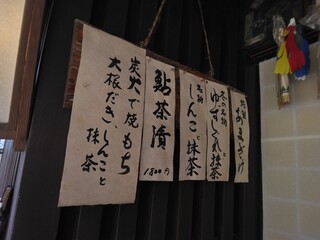 あまざけ
ゆずしぐれ抹茶
名物
しんこと抹茶
鮎茶漬
1800円
炭火で焼もち
大根だき、しんこと
抹茶